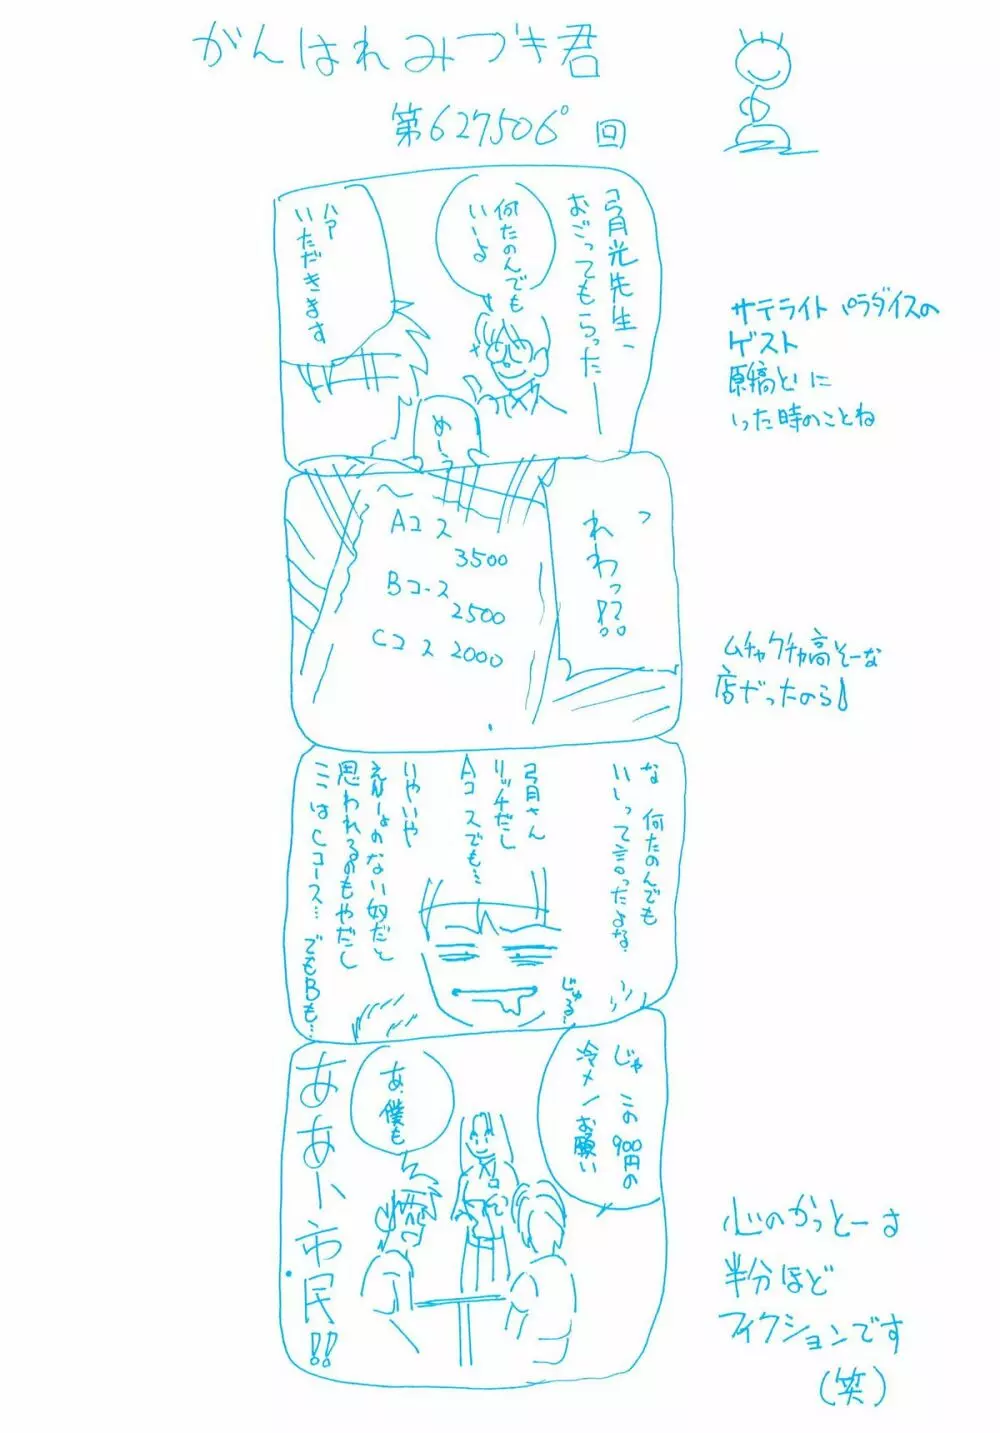 がんばれみづき君
第627506°回
弓月光先生、
おごってもらったー
何たのんでも
いーよ
ハア
いただきます
めーう
サテライトパラダイスの
ゲスト
原稿といに
いった時のことね
Aコス
3500
Bコース
2500
Cコス 2000
っ
れわっ!?
ムチャクチャ高そーな
店だったのら
な 何たのんでも
いいって言ったよな。
弓月さん
リッチだし
Aコスでも…
いやいや
えんりょのない奴だと
思われるのもやだし
ここはCコース… でもBも…
じゅる…
じゃ この900円の
冷メンお願い
あ、僕も
ああ、市民!!
心のかっとーは
半分ほど
フィクションです
(笑)